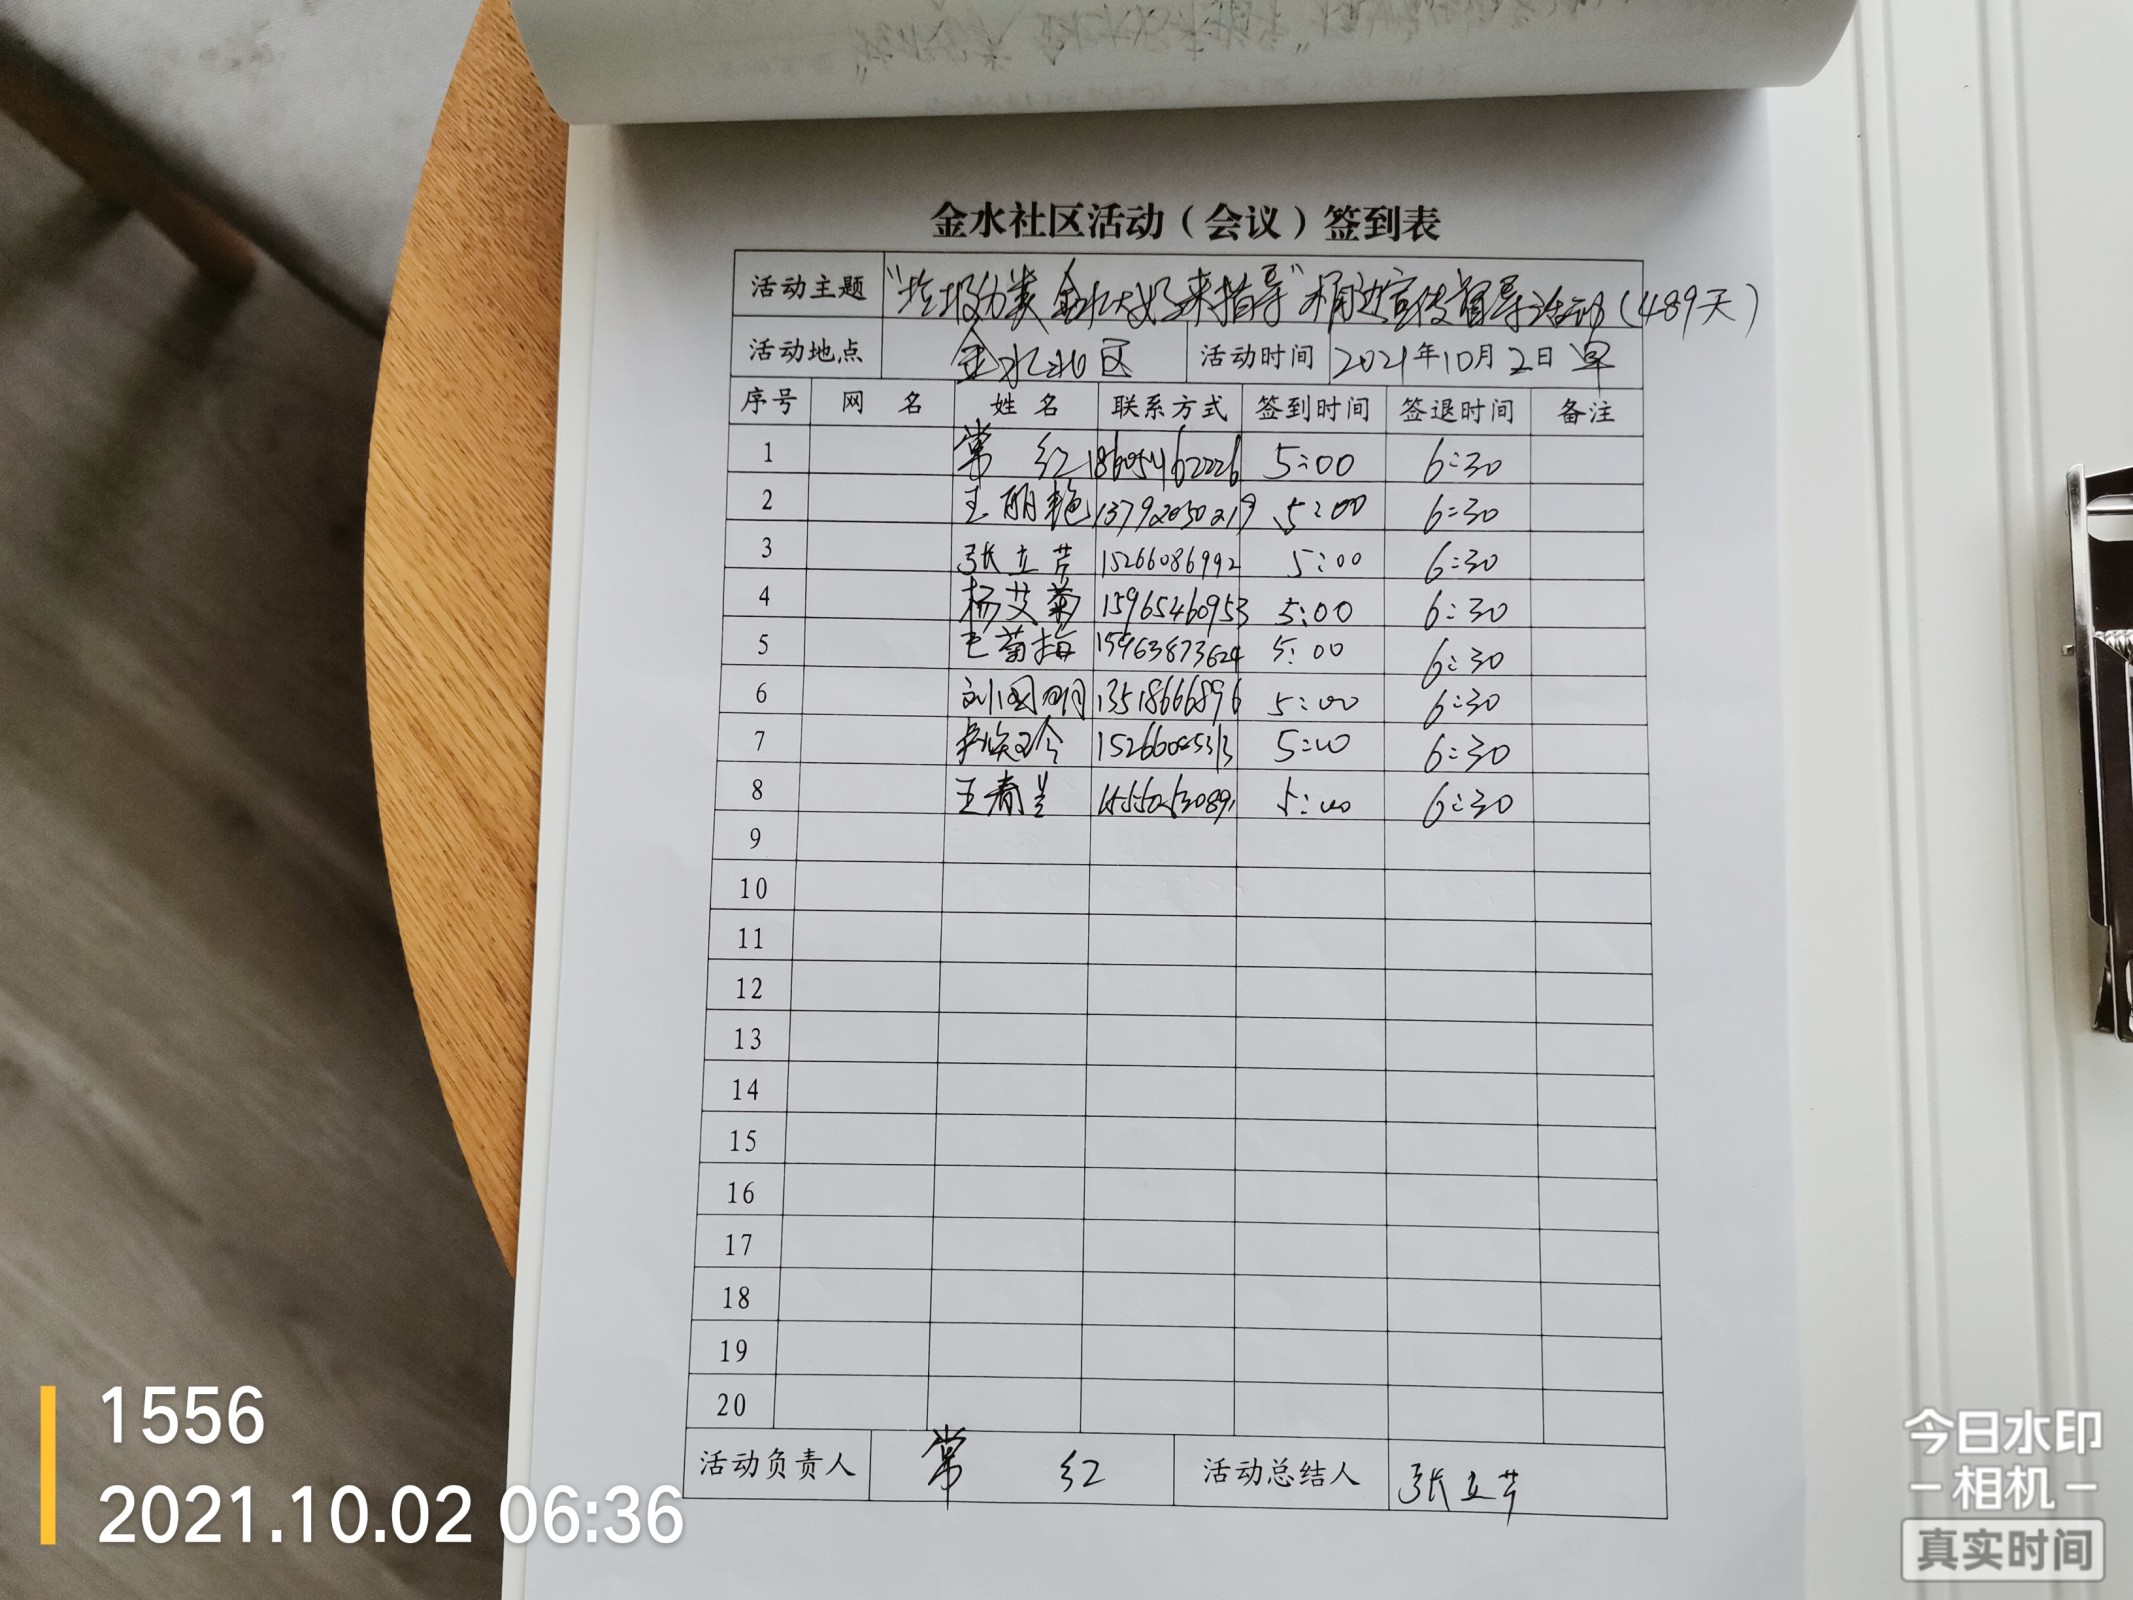 金水社区活动（会议）签到表
活动主题 “垃圾分类 金水大姐来指导”桶边宣传督导活动（489天）
活动地点 金水北区 活动时间 2021年10月2日 早
序号 网 名 姓 名 联系方式 签到时间 签退时间 备注
1 常 红 18605462226 5:00 6:30
2 王丽艳 13792050219 5:00 6:30
3 张立芹 15266086992 5:00 6:30
4 杨艾菊 15965460953 5:00 6:30
5 菊梅 15963873624 5:00 6:30
6 刘国明 13518666896 5:00 6:30
7 5:00 6:30
8 王春兰 5:00 6:30
9
10
11
12
13
14
15
16
17
18
19
20
活动负责人 常 红 活动总结人 张立芹
1556
2021.10.02 06:36
今日水印
相机
真实时间